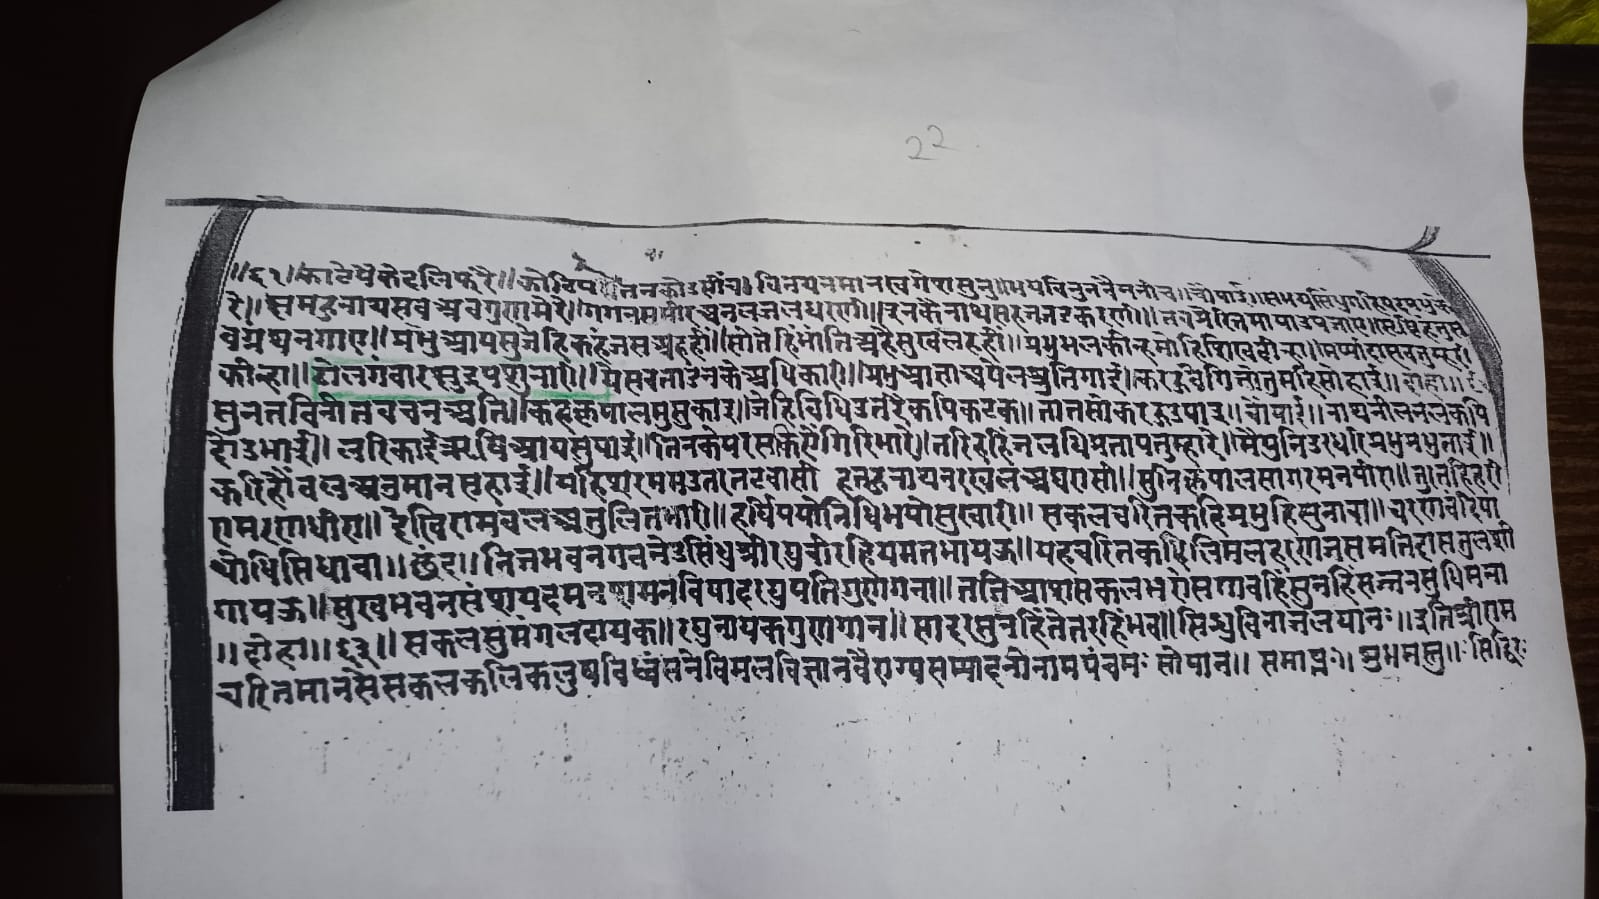 22
॥६१॥ काटेपैकदलिफरै॥ कोटि जतनकोउसींच॥ विनयनमानखगेशसुनु॥ भयविनुनवैननीच॥ चौपाई॥ सभयसिंधुगहिपदप्रभु
रे॥ छमहुनाथसबअवगुणमेरे॥ गगनसमीरअनलजलधरणी॥ इनकैनाथसहजजडकरणी॥ तव प्रेरितमायाउपजाए॥ सृष्टिहेतुस
बग्रंथनगाए॥ प्रभुआयसुजेहिकहंजसअहही॥ सोतेहिभांतिअहैसुखलहही॥ प्रभुभलकीन्हमोहिशिखदीन्हा॥ मर्यादासबतुम्हरी
कीन्हा॥ ढोलगंवारसुद्रपशुनारी॥ सबताडनकेअधिकारी॥ श्रुतिगाई॥ करहुवेगि जोतुमहिसोहाई॥ दोहा॥
सुनतविनीतवचनअति॥ कहकृपालमुसुकाइ॥ जेहिविधिउतरैकपिकटक॥ तातसोकरहुउपाइ॥ चौपाई॥ नाथनीलनलकपि
दोउभाई॥ लरिकाई ऋषिआयसुपाई॥ तिनकेपरसकिएगिरिभारे॥ तरिहहिंजलधिप्रतापतुम्हारे॥ मैपुनिउरधरिप्रभुप्रभुताई॥
करिहौंवलअनुमानसहाई॥ यहिशरममउतरतटवासी हनहुनाथनरखलअघरासी॥ सुनिकृपालसागरमनपीरा॥ तुरतहिहरी
रामरणधीरा॥ देखिरामवलअतुलितभारी॥ हर्षिपयोनिधिभयोसुखारी॥ सकलचरितकहिप्रभुहिसुनावा॥ चरणवंदिपा
थोधिसिधावा॥ छंद॥ निजभवनगवनेउसिंधुश्रीरघुवीरहियमतभायऊ॥ यहचरितकलिमलहरणजसमतिदासतुलशी
गायऊ॥ सुखभवनसंशय दमनविषादरघुपतिगुणगना॥ तजिआशसकलभरोसगावहिंसुनहिंसज्जनसुचिमना
॥ दोहा॥ ६२॥ सकलसुमंगलदायक॥ रघुनायकगुणगान॥ सादरसुनहिंतेतरहिंभव॥ सिंधुविनाजलयानः॥ इतिश्रीराम
चरितमानसेसकलकलिकलुषविध्वंसनेविमलविज्ञानवैराग्यसम्पादनीनामपंचमः सोपान॥ समाप्तः॥ शुभमस्तु॥